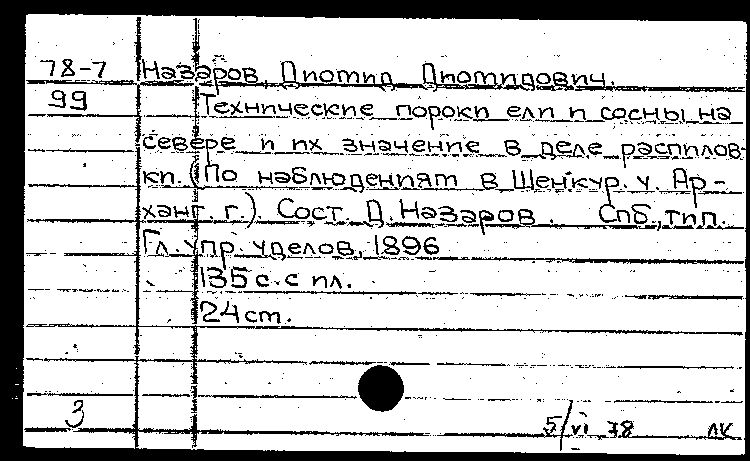 78-7 Назаров, Диотид Диотидович.
99 Технические пороки ели и сосны на
севере и их значение в деле распилов-
ки. (По наблюдениям в Шенкур. у. Ар-
ханг. г.). Сост. Д. Назаров. Спб., тип.
Гл. упр. уделов, 1896
135 с. с ил.
24 ст.
3 5/VI 78 ЛК